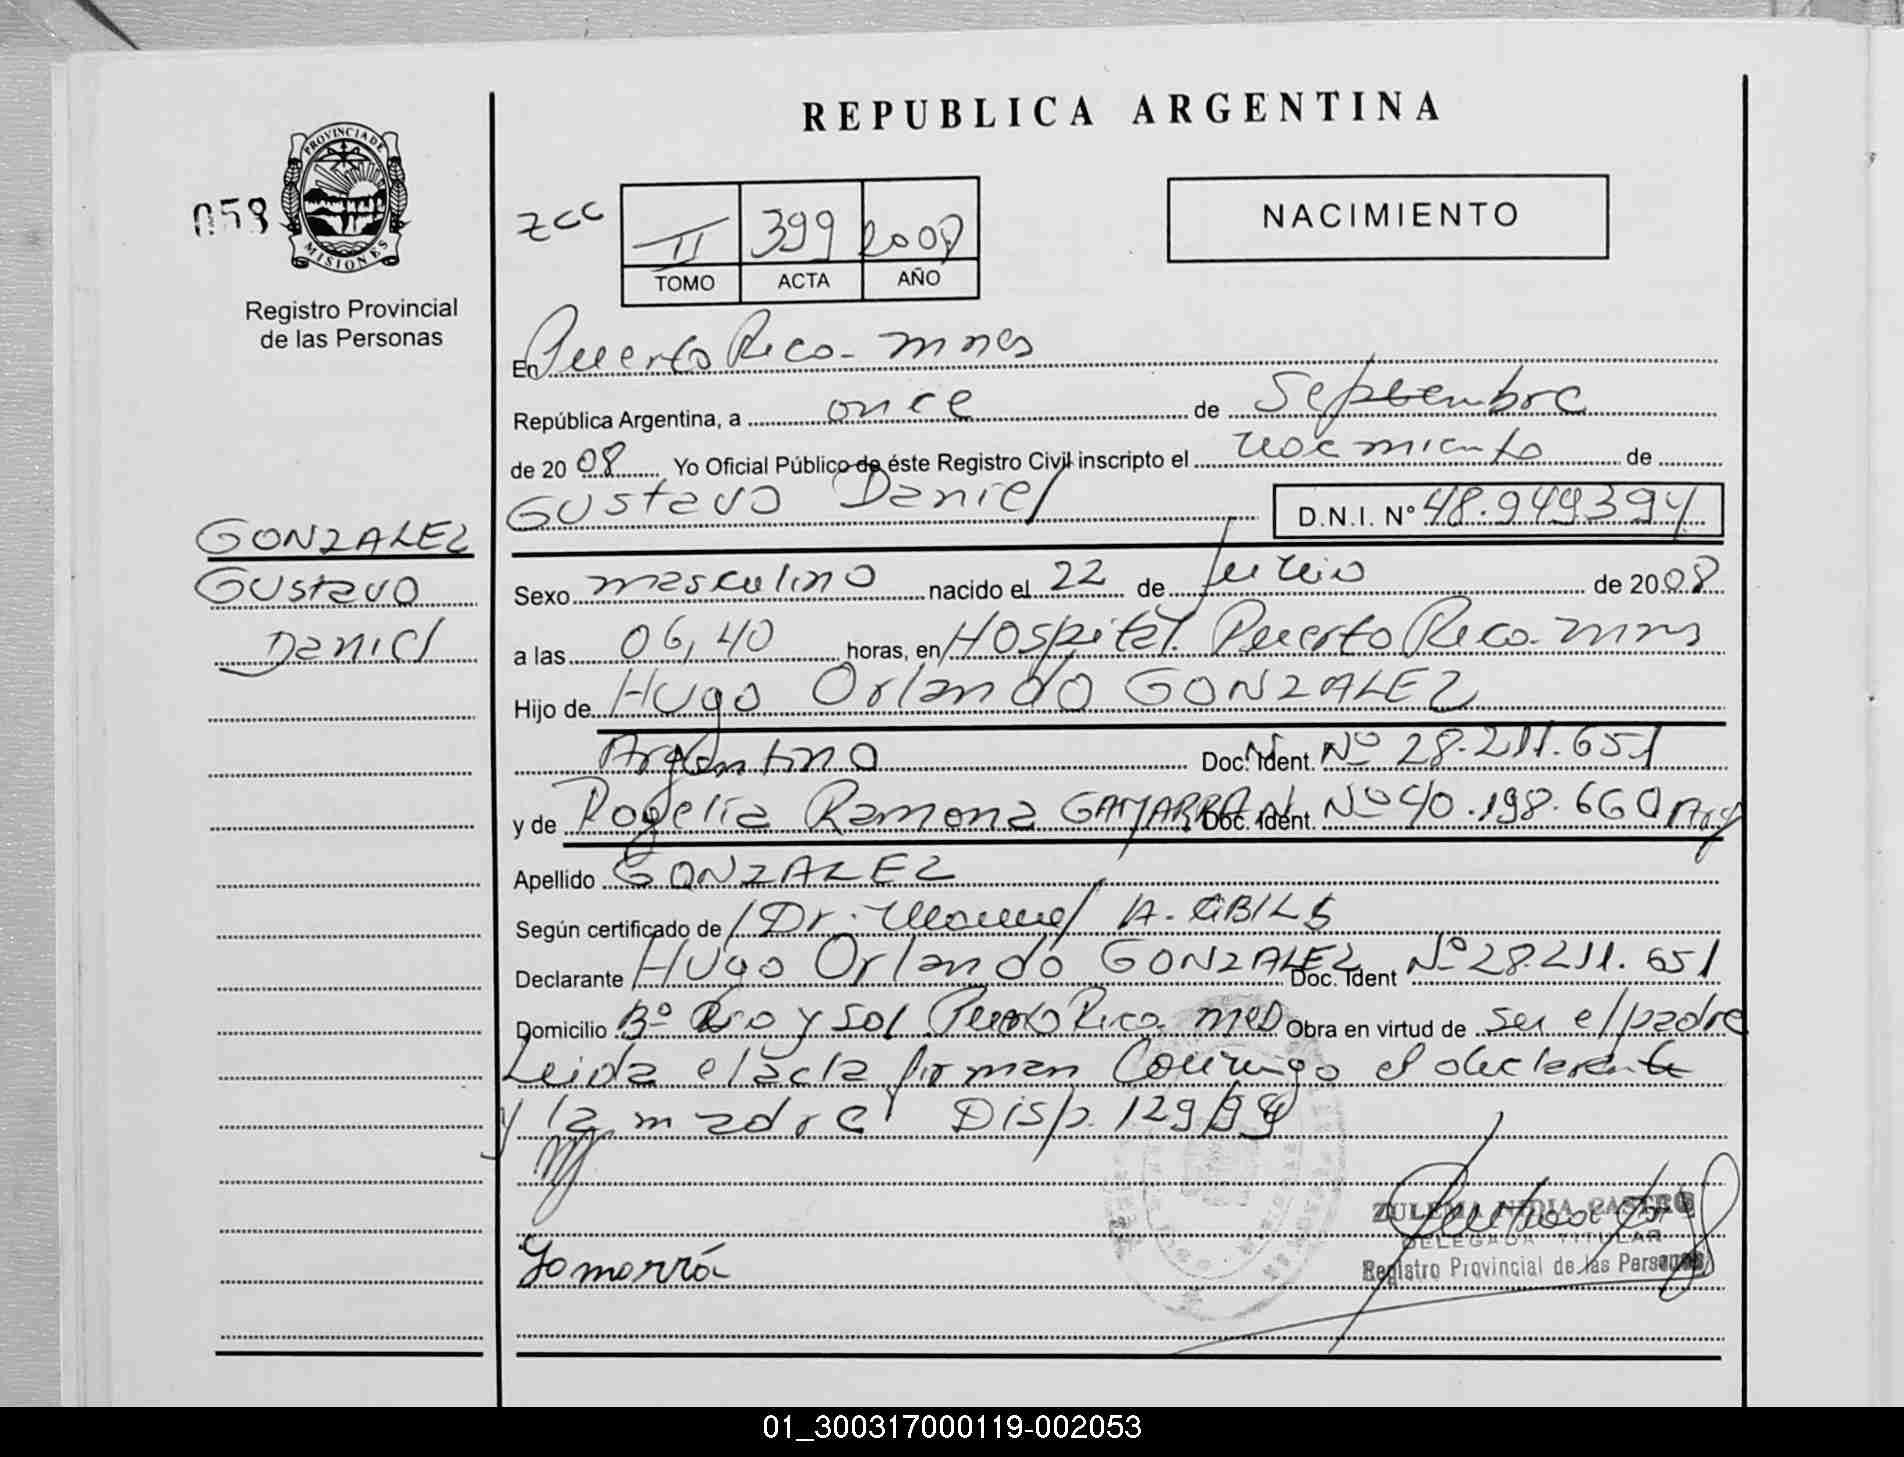 REPUBLICA ARGENTINA
PROVINCIA DE MISIONES
058
Registro Provincial
de las Personas
zcc II 399 2008
TOMO ACTA AÑO
NACIMIENTO
En Puerto Rico - mnes
República Argentina, a once de Septiembre
de 20 08 Yo Oficial Público de éste Registro Civil inscripto el nacimiento de
Gustavo Daniel D.N.I. N° 48.949394
GONZALEZ
Gustavo
Daniel
Sexo masculino nacido el 22 de Junio de 20 08
a las 06,40 horas, en Hospital Puerto Rico - mnes
Hijo de Hugo Orlando GONZALEZ
Argentino Doc. Ident. Nº 28.211.651
y de Rogelia Ramona GAMARRA Doc. Ident. Nº 40.198.660 Arg
Apellido GONZALEZ
Según certificado de Dr. Manuel A.
Declarante Hugo Orlando GONZALEZ Doc. Ident Nº 28.211.651
Domicilio Bº Rio y Sol Puerto Rico mnes Obra en virtud de ser el padre
Leida el acta firman conmigo el declarante
y la madre Disp. 129/98
ZULEMA NIDIA CASTRO
DELEGADA TITULAR
Registro Provincial de las Personas
Gamarra
01_300317000119-002053